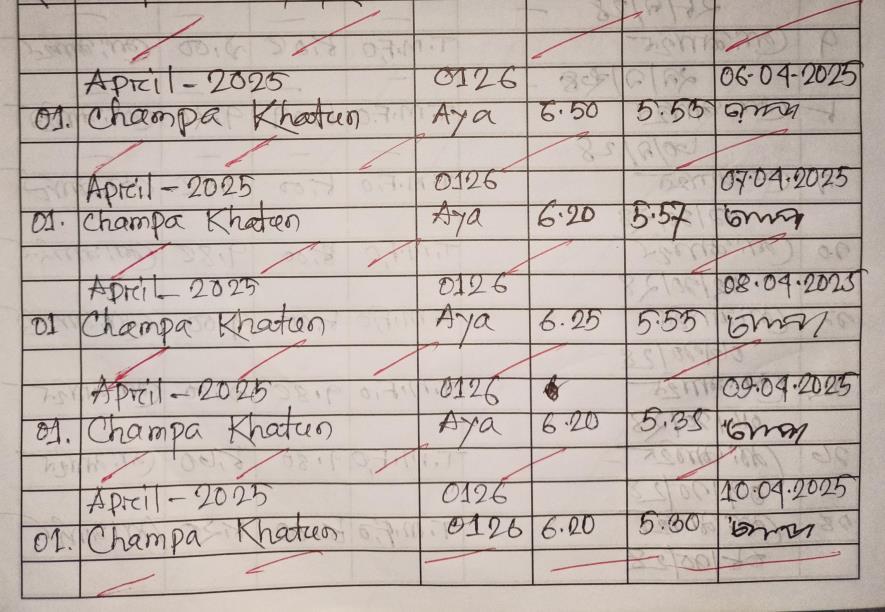 April - 2025 0126 06-04-2025
01. Champa Khatun Aya 6.50 5.55 চম্পা
April - 2025 0126 07.04.2025
01. Champa Khatun Aya 6.20 5.57 চম্পা
April 2025 0126 08.04.2025
01 Champa Khatun Aya 6.25 5.55 চম্পা
April - 2025 0126 09.04.2025
01. Champa Khatun Aya 6.20 5.35 চম্পা
April - 2025 0126 10.04.2025
01. Champa Khatun 0126 6.20 5.30 চম্পা